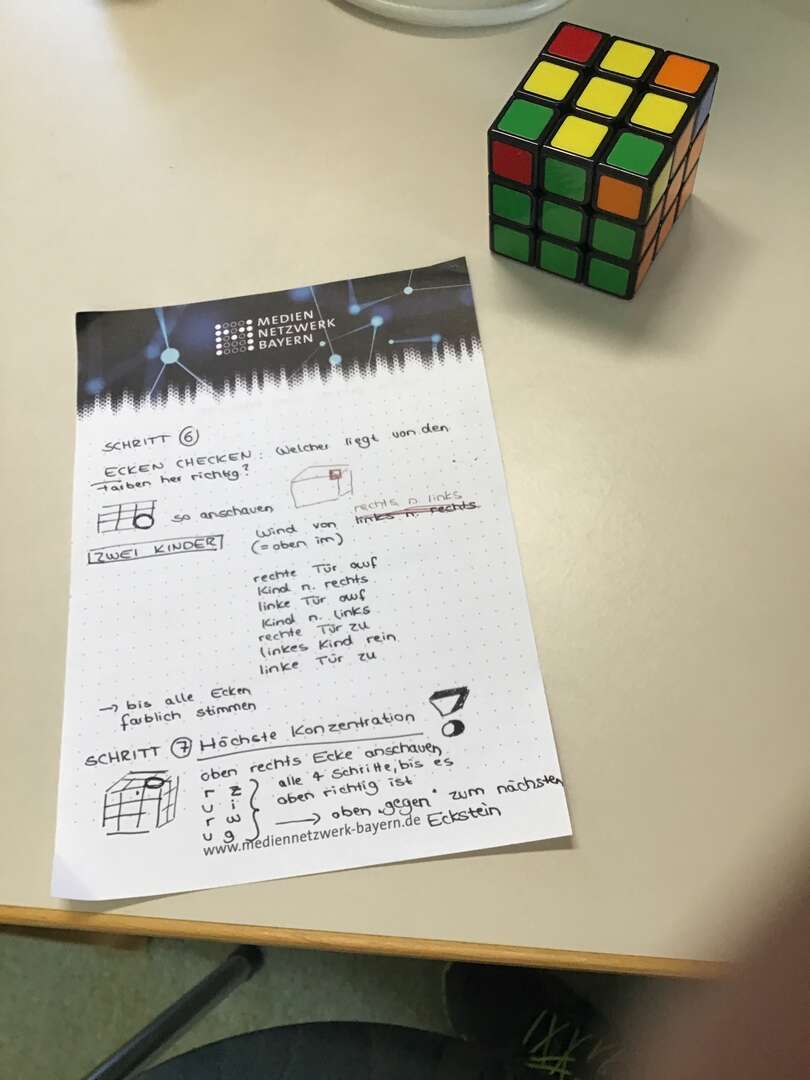 MEDIEN
NETZWERK
BAYERN
SCHRITT 6
ECKEN CHECKEN: Welcher liegt von den
Farben her richtig?
so anschauen
rechts n links
links n. rechts
ZWEI KINDER
Wind von
(= oben im)
rechte Tür auf
Kind n. rechts
linke Tür auf
Kind n. links
rechte Tür zu
linkes Kind rein
linke Tür zu
→ bis alle Ecken
farblich stimmen
SCHRITT 7 Höchste Konzentration !
oben rechts Ecke anschauen
r z } alle 4 Schritte, bis es
u i oben richtig ist
r w → oben „gegen" zum nächsten
u g Eckstein
www.mediennetzwerk-bayern.de